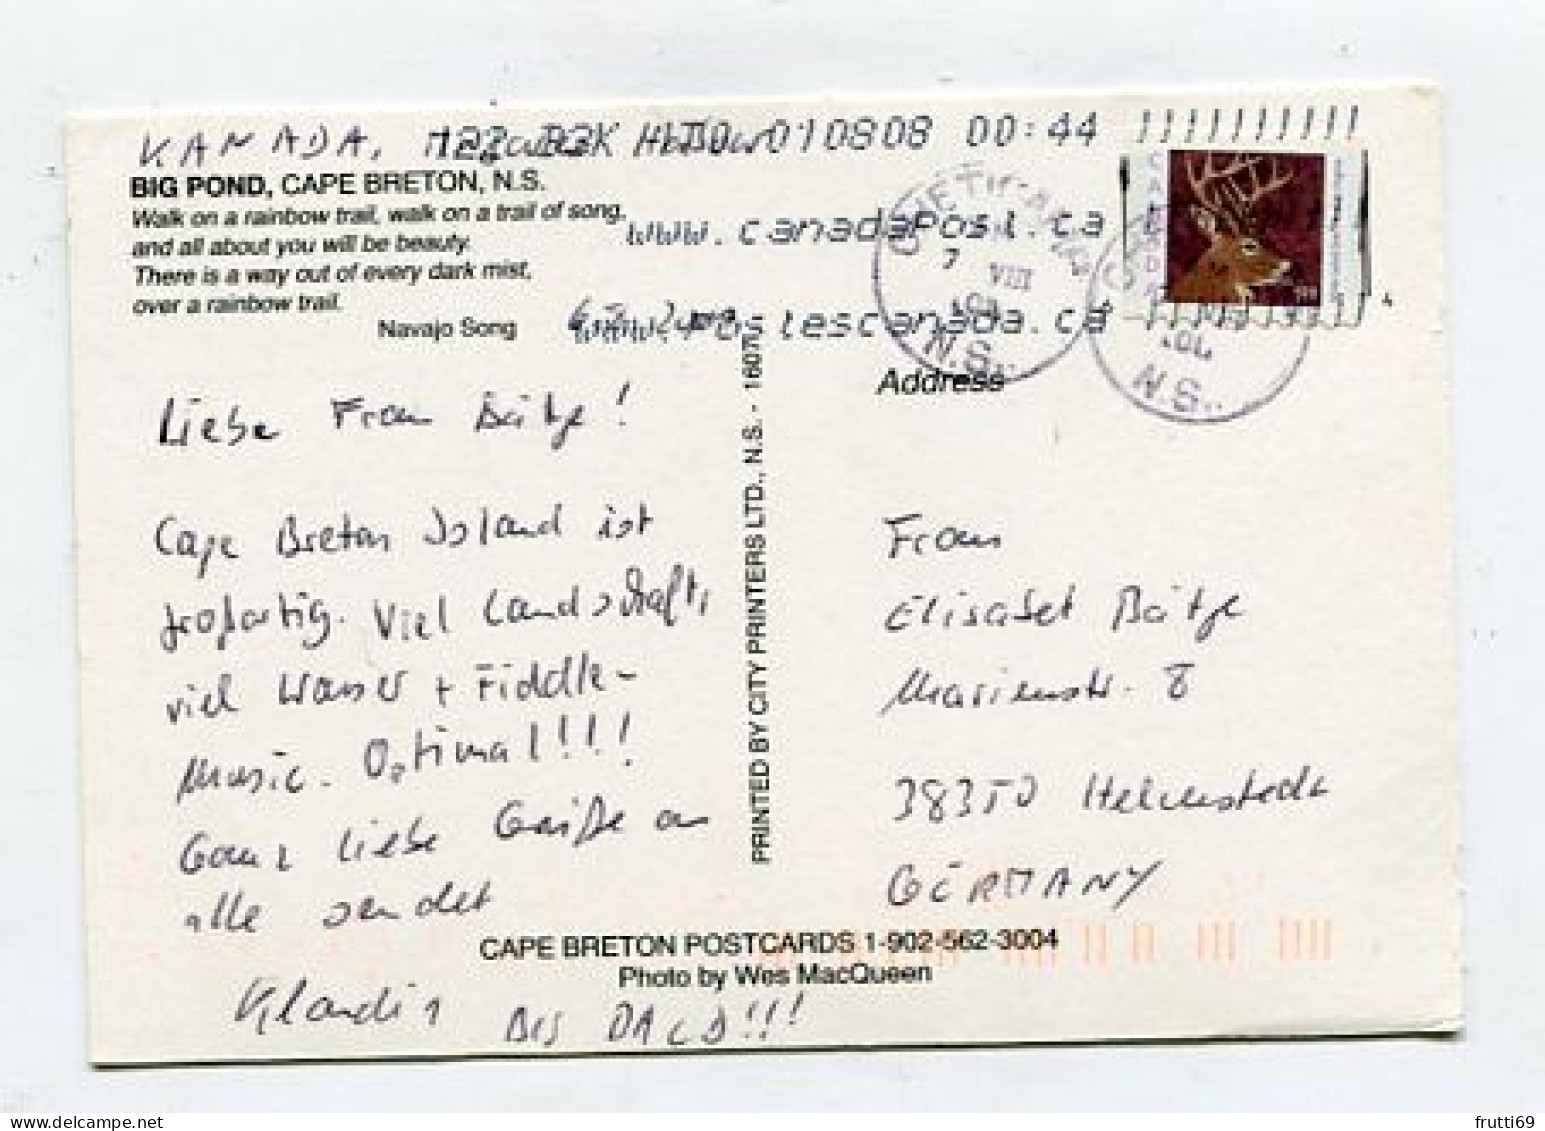 KANADA,
010808 00:44
BIG POND, CAPE BRETON, N.S.
Walk on a rainbow trail, walk on a trail of song,
and all about you will be beauty.
There is a way out of every dark mist,
over a rainbow trail.
Navajo Song
www.canadapost.ca
CANADA
7
VIII
N.S.
N.S.
Liebe Frau Bätge!
Cape Breton Island ist
großartig. Viel Landschaft,
viel Wasser + Fiddle-
Music. Optimal!!!
Ganz liebe Grüße an
alle sendet
Klaudia
BIS BALD!!!
PRINTED BY CITY PRINTERS LTD., N.S. - 16070
Address
Frau
Elisabet Bätge
Marienstr. 8
38350 Helmstedt
GERMANY
CAPE BRETON POSTCARDS 1-902-562-3004
Photo by Wes MacQueen
frutti69